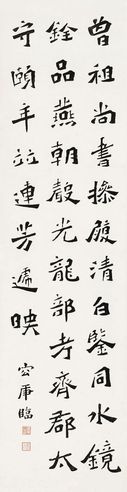 曾祖尚書操履清白鑒同水鏡
銓品燕朝聲光龍部考齊郡太
守頤年竝連芳遞映
臨